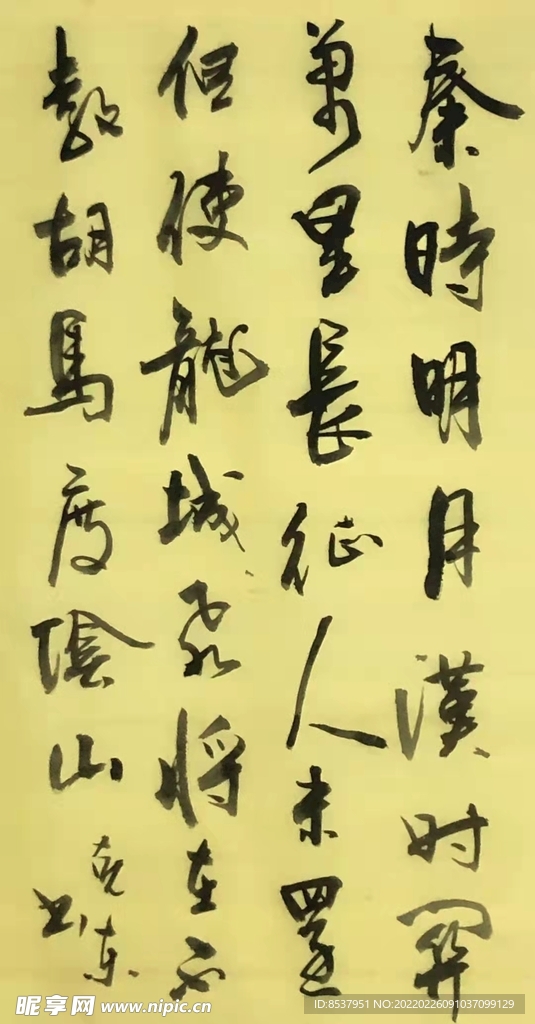 秦時明月漢时關
萬里長征人未還
但使龍城飛將在不
教胡馬度陰山
克东
书
昵享网 www.nipic.cn
ID:8537951 NO:20220226091037099129